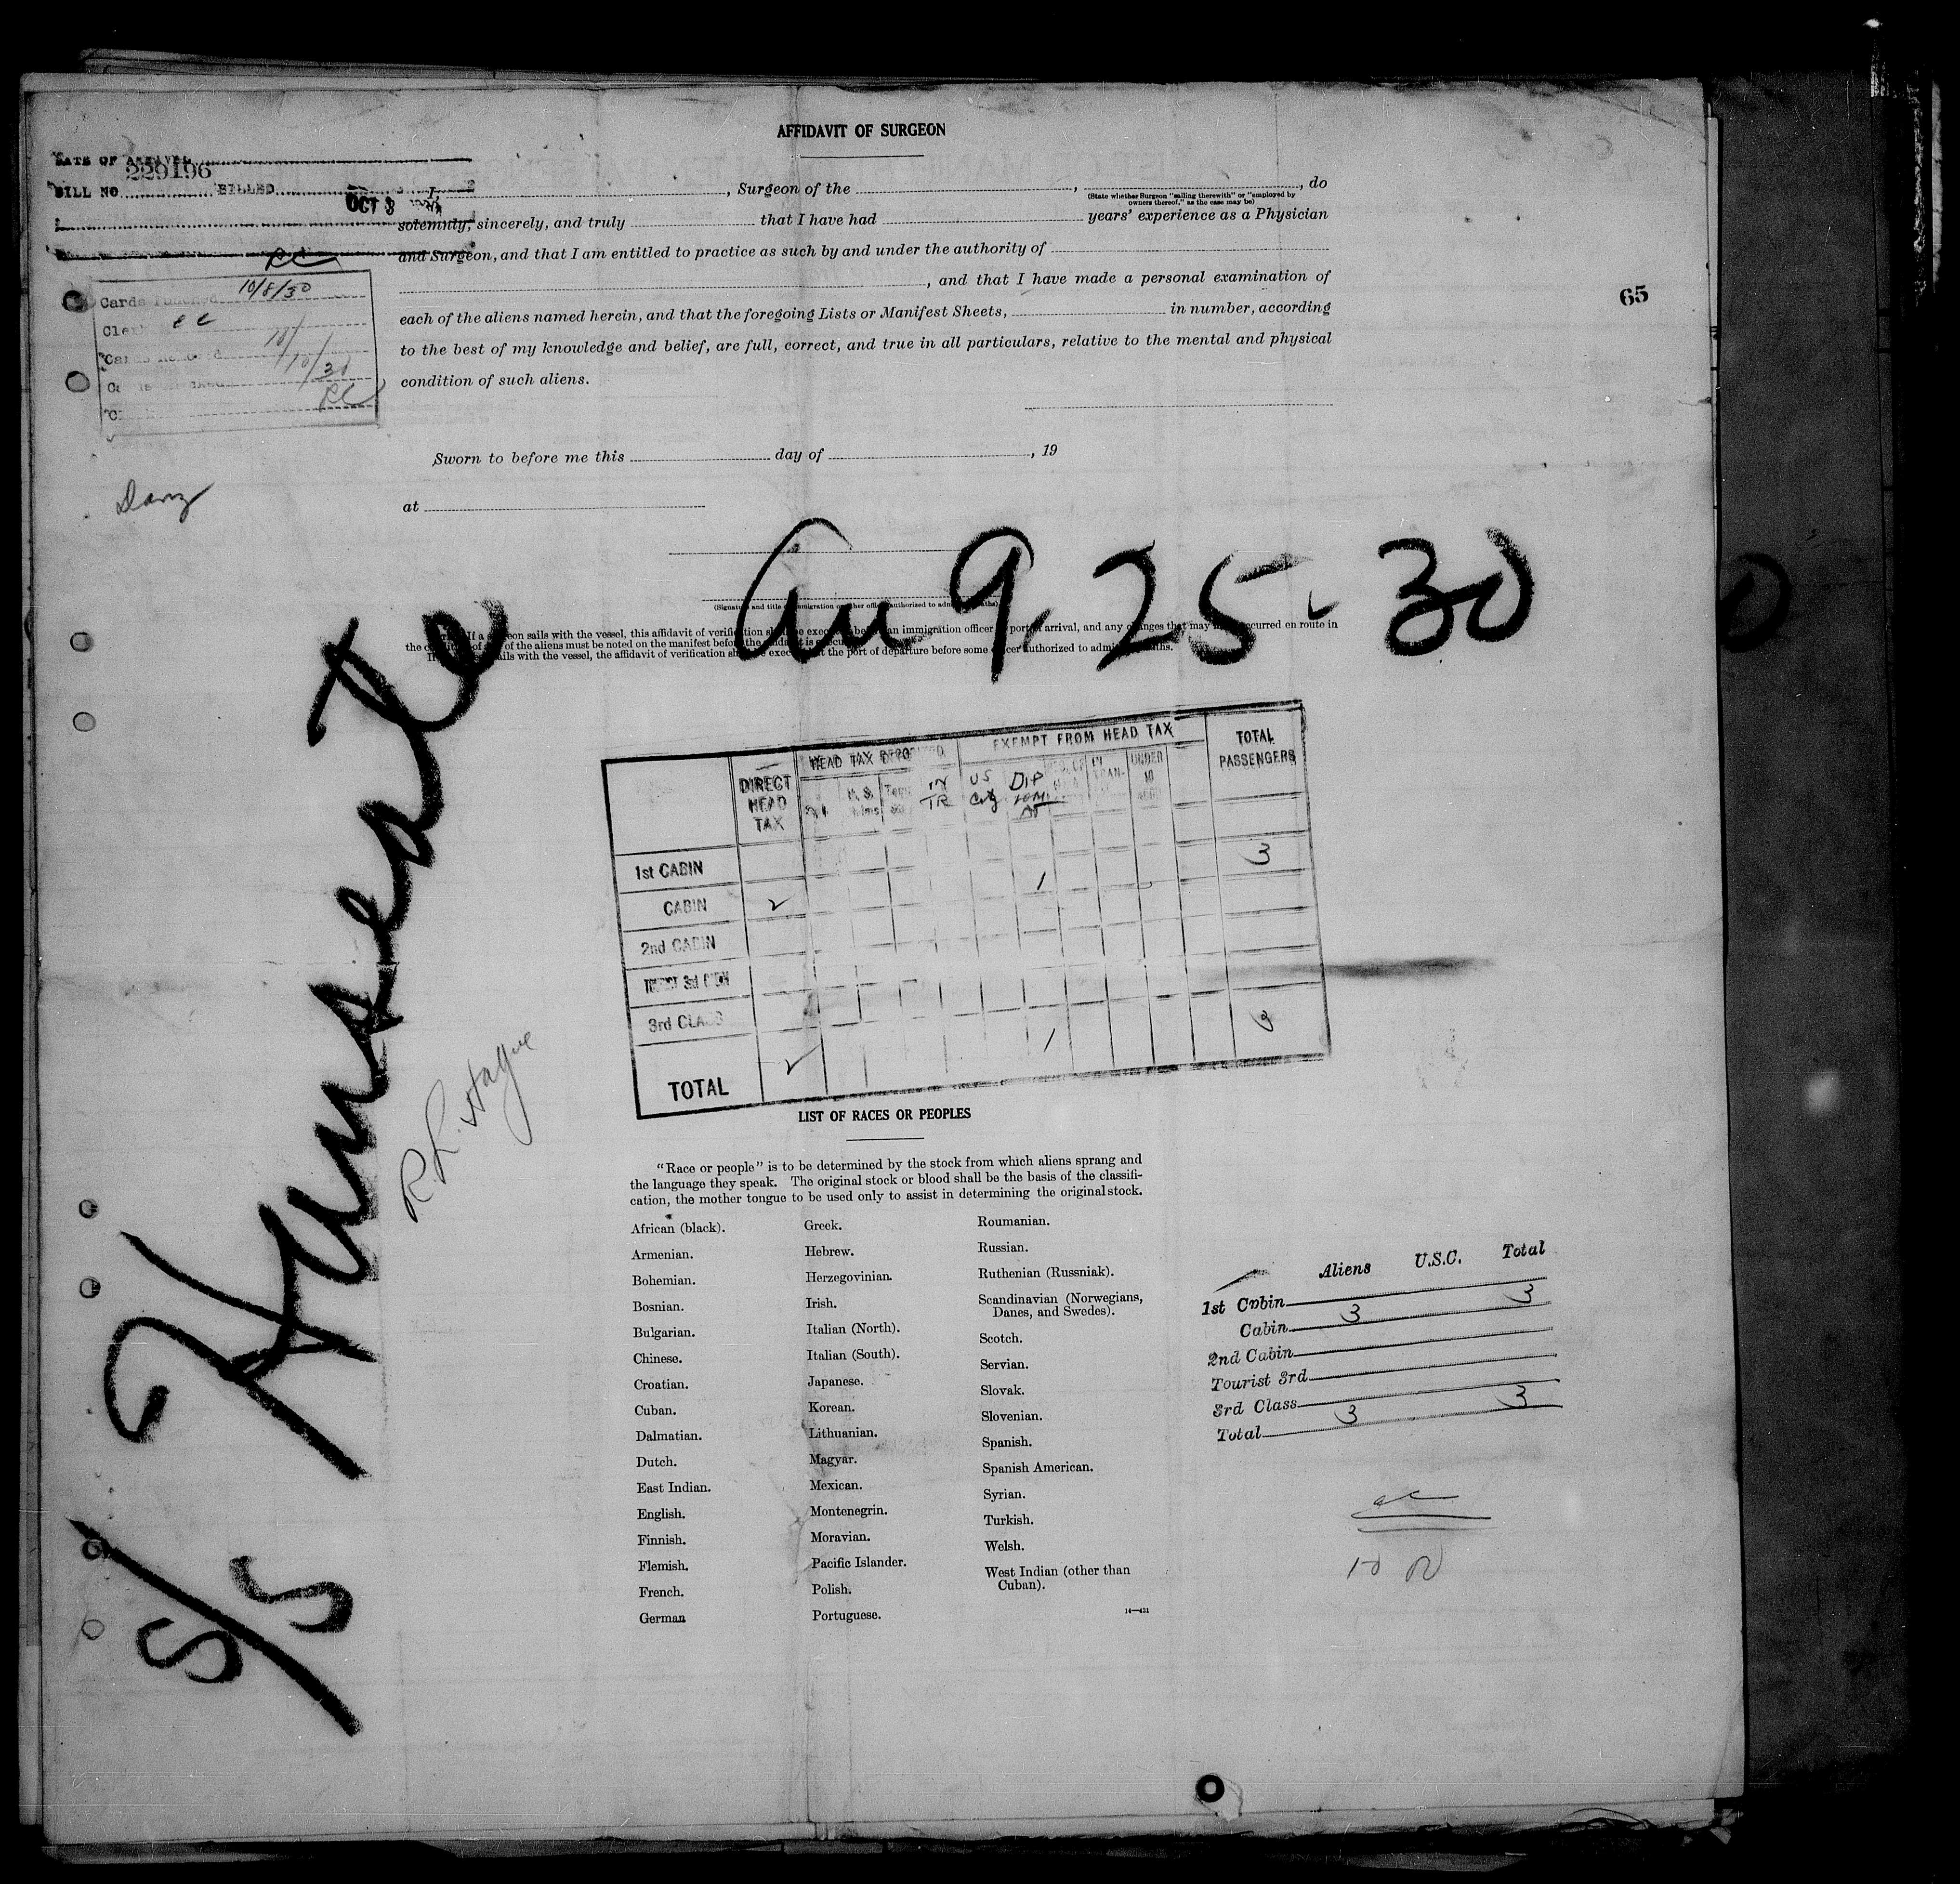 AFFIDAVIT OF SURGEON
DATE OF ARRIVAL
229196
BILL NO. BILLED
OCT 8
I, , Surgeon of the , , do
(State whether Surgeon "sailing therewith" or "employed by
owners thereof," as the case may be)
solemnly, sincerely, and truly that I have had years' experience as a Physician
and Surgeon, and that I am entitled to practice as such by and under the authority of
, and that I have made a personal examination of
each of the aliens named herein, and that the foregoing Lists or Manifest Sheets, in number, according
to the best of my knowledge and belief, are full, correct, and true in all particulars, relative to the mental and physical
condition of such aliens.
65
Cards 10/8/30
10/10/30
Sworn to before me this day of , 19
at
9, 25 - 30
(Signature and title of immigration or other officer authorized to administer oaths)
If a surgeon sails with the vessel, this affidavit of verification shall be executed before an immigration officer port of arrival, and any changes that may occurred en route in
the condition of any of the aliens must be noted on the manifest before the affidavit is executed.
sails with the vessel, the affidavit of verification shall be executed at the port of departure before some officer authorized to administer oaths.
S/S Hanseate
R. L. Hague
DIRECT HEAD TAX
HEAD TAX DEPOSITED
EXEMPT FROM HEAD TAX
TOTAL PASSENGERS
IN TR
US
UNDER 10
1st CABIN 3
CABIN 2 1
2nd CABIN
TOURIST 3rd
3rd CLASS 3
TOTAL 2 1
LIST OF RACES OR PEOPLES
"Race or people" is to be determined by the stock from which aliens sprang and
the language they speak. The original stock or blood shall be the basis of the classifi-
cation, the mother tongue to be used only to assist in determining the original stock.
African (black).
Armenian.
Bohemian.
Bosnian.
Bulgarian.
Chinese.
Croatian.
Cuban.
Dalmatian.
Dutch.
East Indian.
English.
Finnish.
Flemish.
French.
German
Greek.
Hebrew.
Herzegovinian.
Irish.
Italian (North).
Italian (South).
Japanese.
Korean.
Lithuanian.
Magyar.
Mexican.
Montenegrin.
Moravian.
Pacific Islander.
Polish.
Portuguese.
Roumanian.
Russian.
Ruthenian (Russniak).
Scandinavian (Norwegians,
Danes, and Swedes).
Scotch.
Servian.
Slovak.
Slovenian.
Spanish.
Spanish American.
Syrian.
Turkish.
Welsh.
West Indian (other than
Cuban).
14—431
Aliens U.S.C. Total
1st Cabin 3
Cabin 3
2nd Cabin
Tourist 3rd
3rd Class 3
Total 3